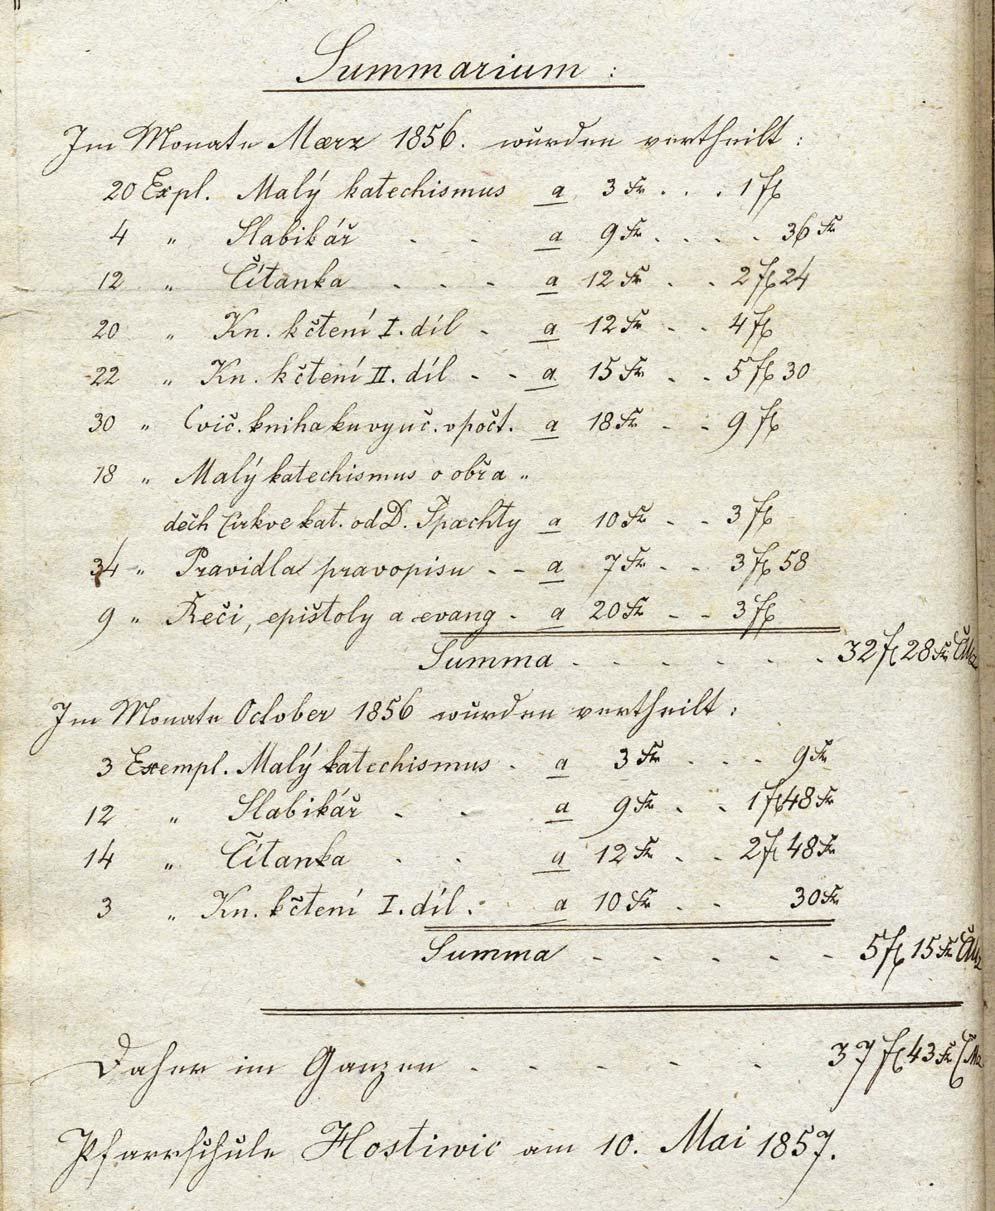 Summarium :
Im Monate Maerz 1856. wurden vertheilt :
20 Expl. Malý katechismus a 3 Kr. . . 1 fl
4 „ Slabikář . . a 9 Kr. . . . 36 Kr
12 „ Čítanka . . . a 12 Kr . . 2 fl 24
20 „ Kn. k čtení I. díl . a 12 Kr . . 4 fl
22 „ Kn. k čtení II. díl . . a 15 Kr . . 5 fl 30
30 „ Cvič. kniha ku vyuč. v počt. a 18 Kr . . 9 fl
18 „ Malý katechismus o obřa „
dech Církve kat. od D. Špachty a 10 Kr . . 3 fl
34 „ Pravidla pravopisu . . a 7 Kr . . 3 fl 58
9 „ Řeči, epištoly a evang . a 20 Kr . . 3 fl
Summa . . . . . . 32 fl 28 Kr CMz
Im Monate October 1856 wurden vertheilt :
3 Exempl. Malý katechismus . a 3 Kr . . . 9 Kr
12 „ Slabikář . . a 9 Kr . . 1 fl 48 Kr
14 „ Čítanka . . a 12 Kr . . 2 fl 48 Kr
3 „ Kn. k čtení I. díl . a 10 Kr . . 30 Kr
Summa . . . . . 5 fl 15 Kr CMz
Daher im Ganzen . . . . . 37 fl 43 Kr CMz
Pfarrschule Hostiwic am 10. Mai 1857.